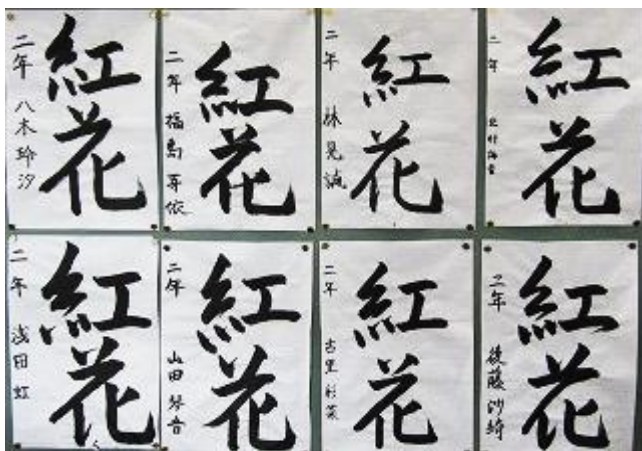 紅花
二年 八木玲汐
紅花
二年 福島芽依
紅花
二年 林晃誠
紅花
二年
紅花
二年 浅田虹
紅花
二年 山田琴音
紅花
二年 古里彩菜
紅花
二年 後藤沙綺